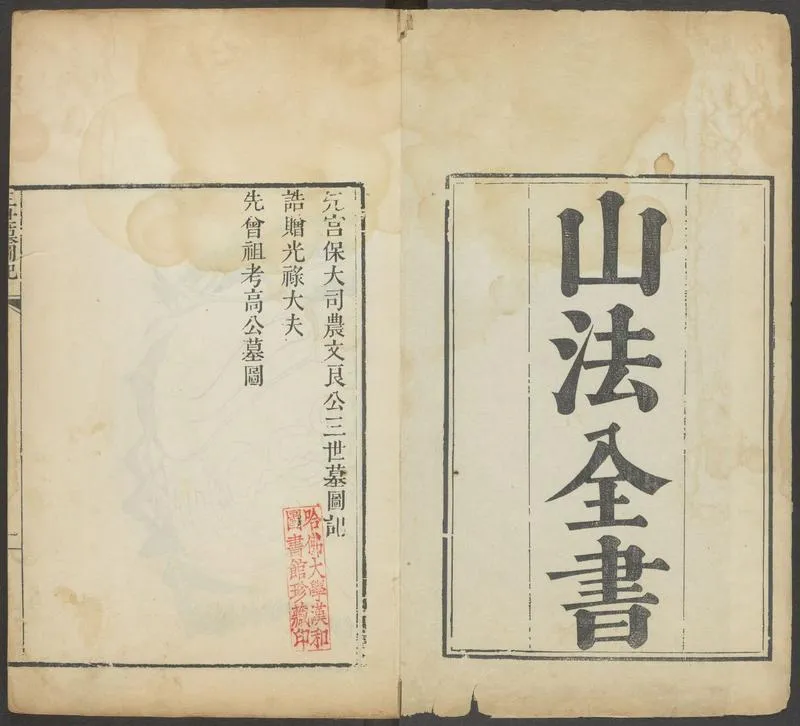 山法全書
元宮保大司農文良公三世墓圖記
誥贈光祿大夫
先曾祖考高公墓圖
哈佛大學漢和
圖書館珍藏印